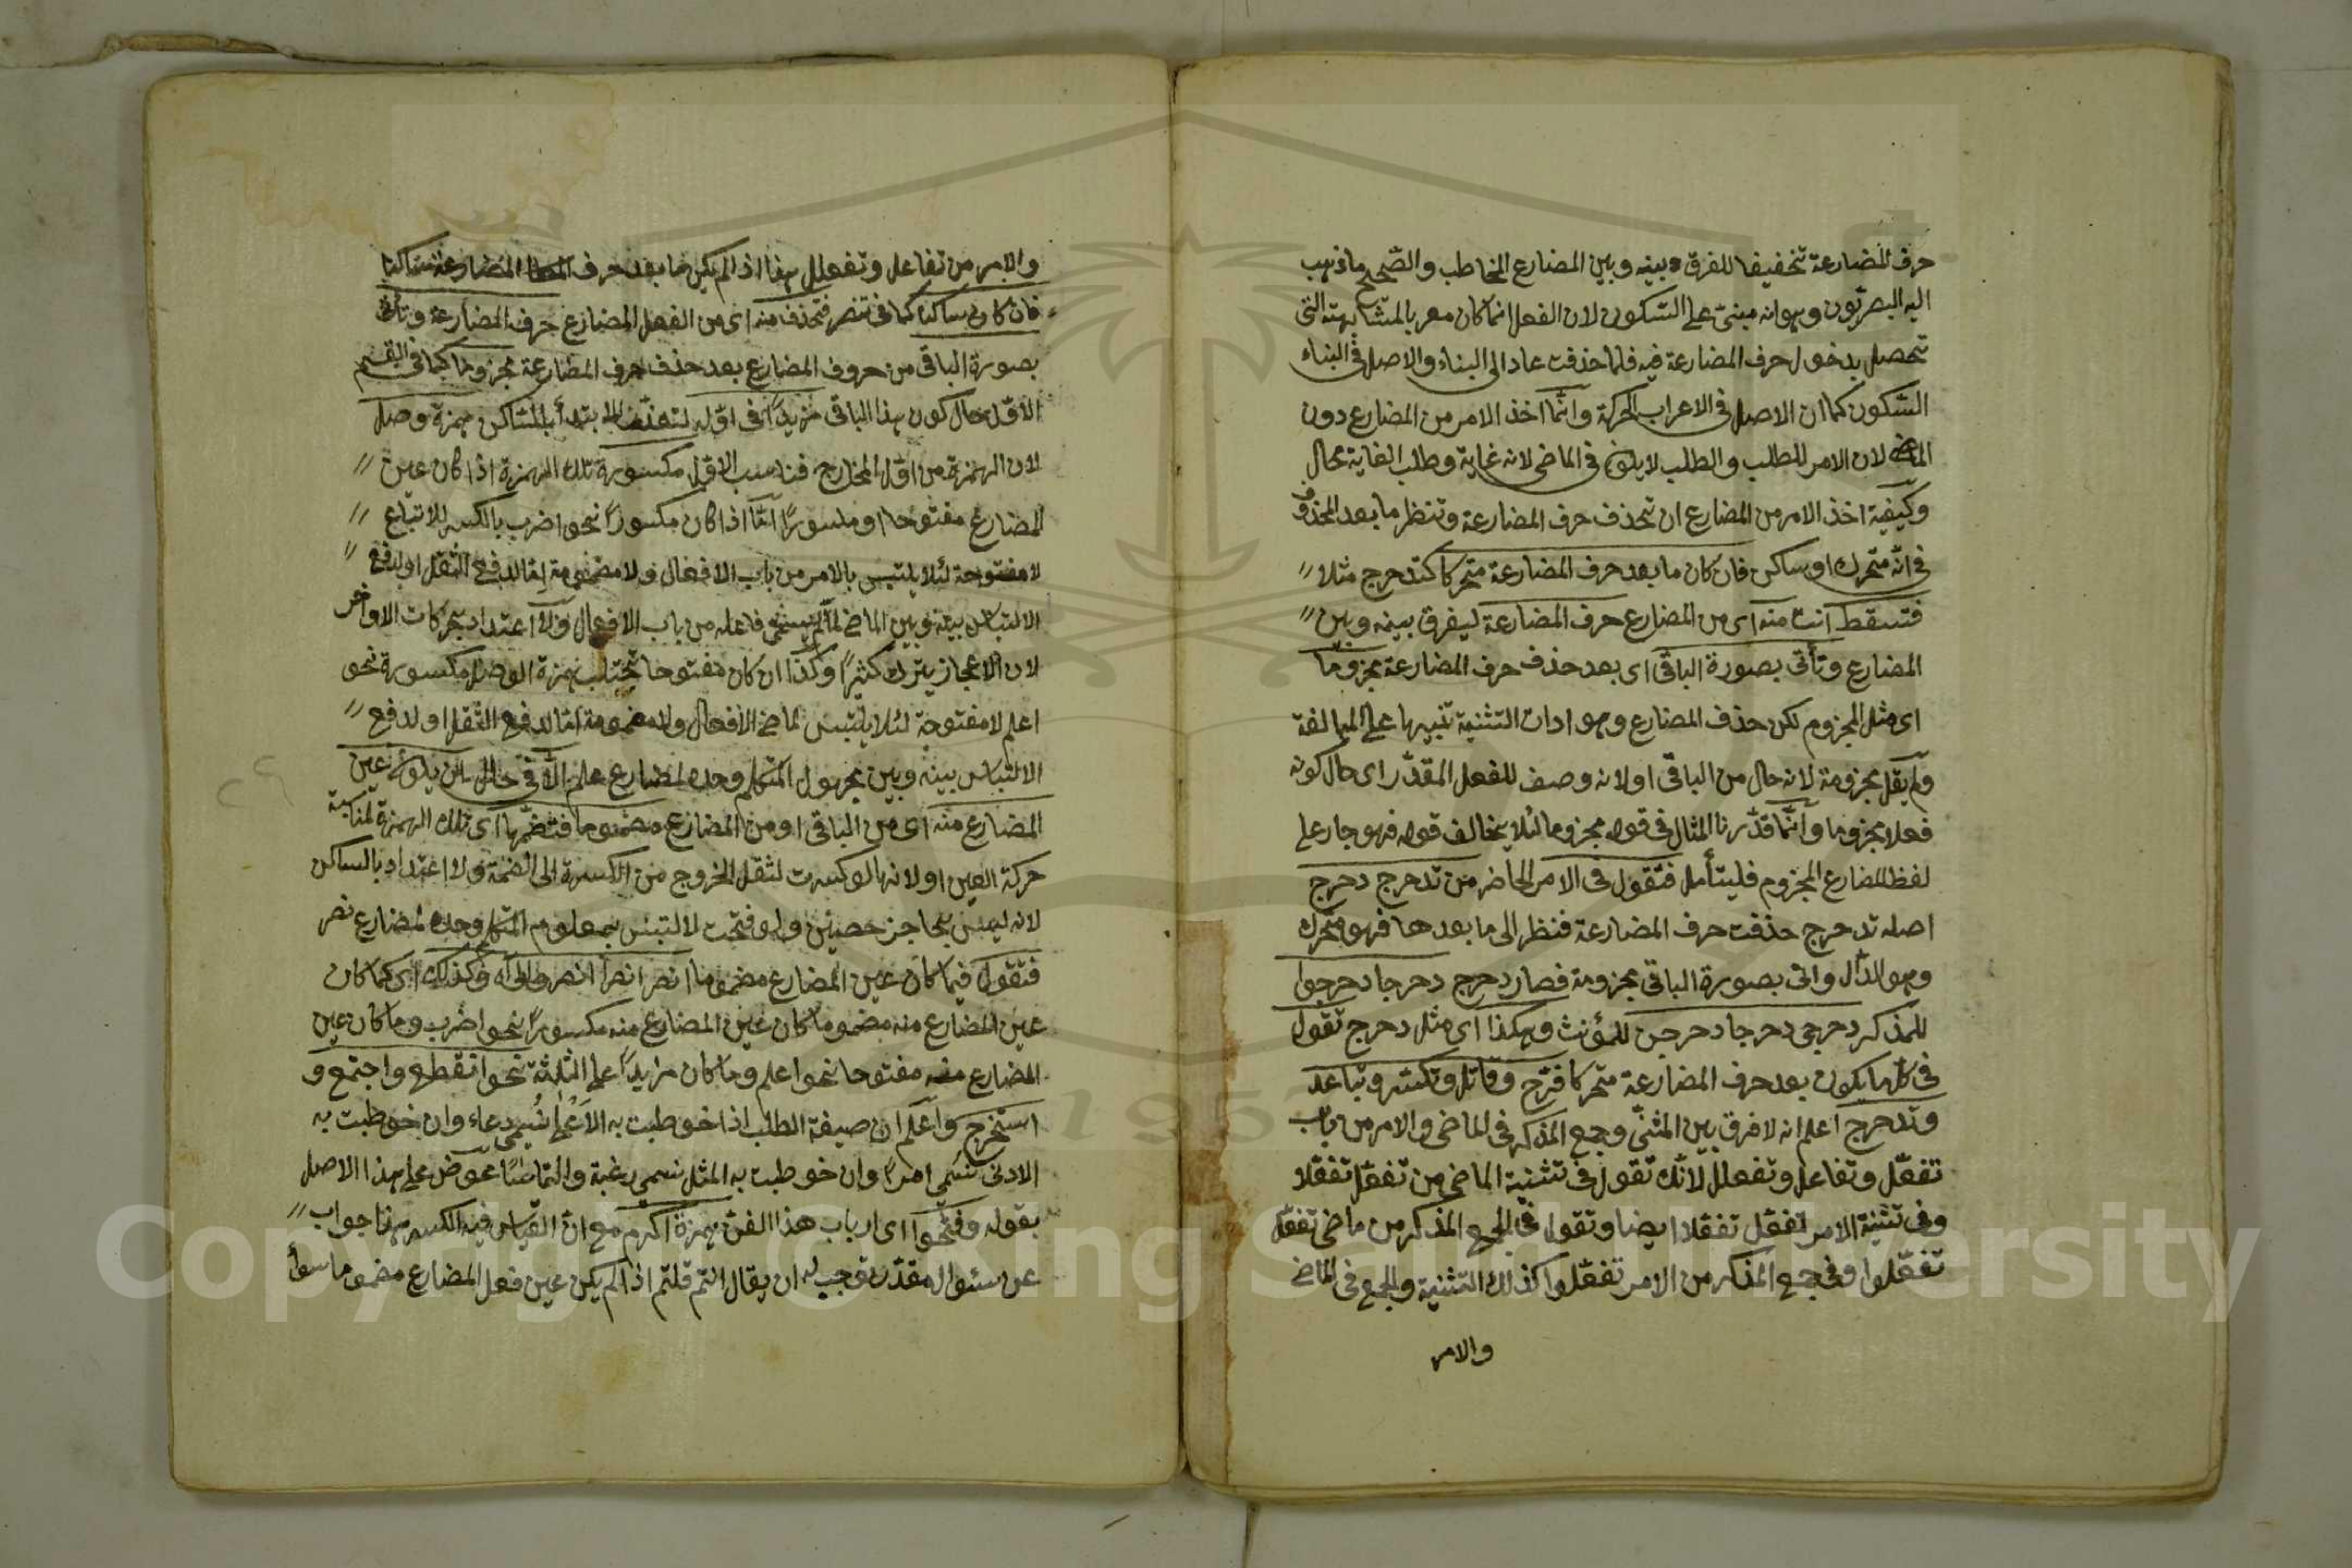 حرف المضارعة تخفيفا للفرق بينه وبين المضارع المخاطب والصحيح ما ذهب
اليه البصريون وهو انه مبنى على السكون لان الفعل انما كان معربا لمشابهته التى
تحصل بدخول حرف المضارعة فيه فلما حذفت عاد الى البناء والاصل فى البناء
السكون كما ان الاصل فى الاعراب الحركة وانما اخذ الامر من المضارع دون
الماضى لان الامر للطلب والطلب لا يكون فى الماضى لانه غاية وطلب الغاية محال
وكيفية اخذ الامر من المضارع ان تحذف حرف المضارعة وتنظر ما بعد المحذوف
فى انه متحرك او ساكن فان كان ما بعد حرف المضارعة متحركا كتدحرج مثلا
فتسقط انت منه اى من المضارع حرف المضارعة ليفرق بينه وبين
المضارع وتأتى بصورة الباقى اى بعد حذف حرف المضارعة مجزوما
اى مثل المجزوم لكن حذف المضارع وهو ادات التثنية تنبيها على المبالغة
ولم يقل مجزومة لانه حال من الباقى او لانه وصف للفعل المقدر اى حال كونه
فعلا مجزوما وانما قدرنا المثال فى قوله مجزوما لئلا يخالف قوله فهو جار على
لفظ المضارع المجزوم فليتأمل فتقول فى الامر الحاضر من تدحرج دحرج
اصله تدحرج حذفت حرف المضارعة فنظر الى ما بعدها فهو متحرك
وهو الدال واتى بصورة الباقى مجزومة فصار دحرج دحرجا دحرجوا
للمذكر دحرجى دحرجا دحرجن للمؤنث وهكذا اى مثل دحرج تقول
فى كل ما يكون بعد حرف المضارعة متحركا فرح وقاتل وتكسر وتباعد
وتدحرج اعلم انه لا فرق بين المثنى وجمع المذكر فى الماضى والامر من باب
تفعّل وتفاعل وتفعلل لانك تقول فى تثنية الماضى من تفعّل تفعّلا
وفى تثنية الامر تفعّل تفعّلا ايضا وتقول فى الجمع المذكر من ماضى تفعّل
تفعّلوا وفى جمع المذكر من الامر تفعّلوا كذلك التثنية والجمع فى الماضى
والامر
والامر من تفاعل وتفعلل هذا اذا لم يكن ما بعد حرف المضارعة ساكنا
فان كان ساكنا كما فى تنصر فتحذف منه اى من الفعل المضارع حرف المضارعة وتأتى
بصورة الباقى من حروف المضارع بعد حذف حرف المضارعة مجزوما كما فى القسم
الاول حال كون هذا الباقى مزيدًا فى اوله لتعذر الابتدأ بالساكن همزة وصل
لان الهمزة من اول المخارج فناسب الاول مكسورة تلك الهمزة اذا كان عين
المضارع مفتوحا او مكسورًا امّا اذا كان مكسورًا نحو اضرب بالكسر للاتباع
لا مفتوحة لئلا يلتبس بالامر من باب الافعال ولا مضمومة امّا لدفع الثقل او لدفع
الالتباس بينه وبين الماضى لما لم يسمّى فاعله من باب الافعال ولا اعتداد بحركات الاواخر
لان الاعجاز يترك كثيرًا وكذا ان كان مفتوحا تجتلب همزة الوصل مكسورة نحو
اعلم لا مفتوحة لئلا يلتبس لماضى الافعال ولا مضمومة امّا لدفع الثقل او لدفع
الالتباس بينه وبين مجهول المتكلم وحده لمضارع علم الّا فى حال ان يكون عين
المضارع منه اى من الباقى او من المضارع مضموما فتضمّها اى تلك الهمزة لمناسبة
حركة العين او لانها لو كسرت لثقل الخروج من الكسرة الى الضمة ولا اعتداد بالساكن
لانه ليس بحاجز حصين ولو فتحت لالتبس بمعلوم المتكلم وحده لمضارع نصر
فتقول فيما كان عين المضارع مضموما انصر انصرا انصروا الى آه وكذلك اى كما كان
عين المضارع منه مضموما كان عين المضارع منه مكسورًا نحو اضرب وما كان عين
المضارع منه مفتوحا نحو اعلم وما كان مزيدًا على الثلثة نحو انقطع واجتمع و
استخرج واعلم ان صيغة الطلب اذا خوطبت به الاعلى سُمّى دعاء وان خوطبت به
الادنى تسمّى امرًا وان خوطبت به المثل تسمى رغبة والتماسًا عوض على هذا الاصل
بقوله وفتحوا اى ارباب هذا الفن همزة اكرم مع انّ القياس فيه الكسر هذا جواب
عن سئوال مقدّر توجيهه ان يقال انتم قلتم اذا لم يكن عين فعل المضارع مضموما سوأ